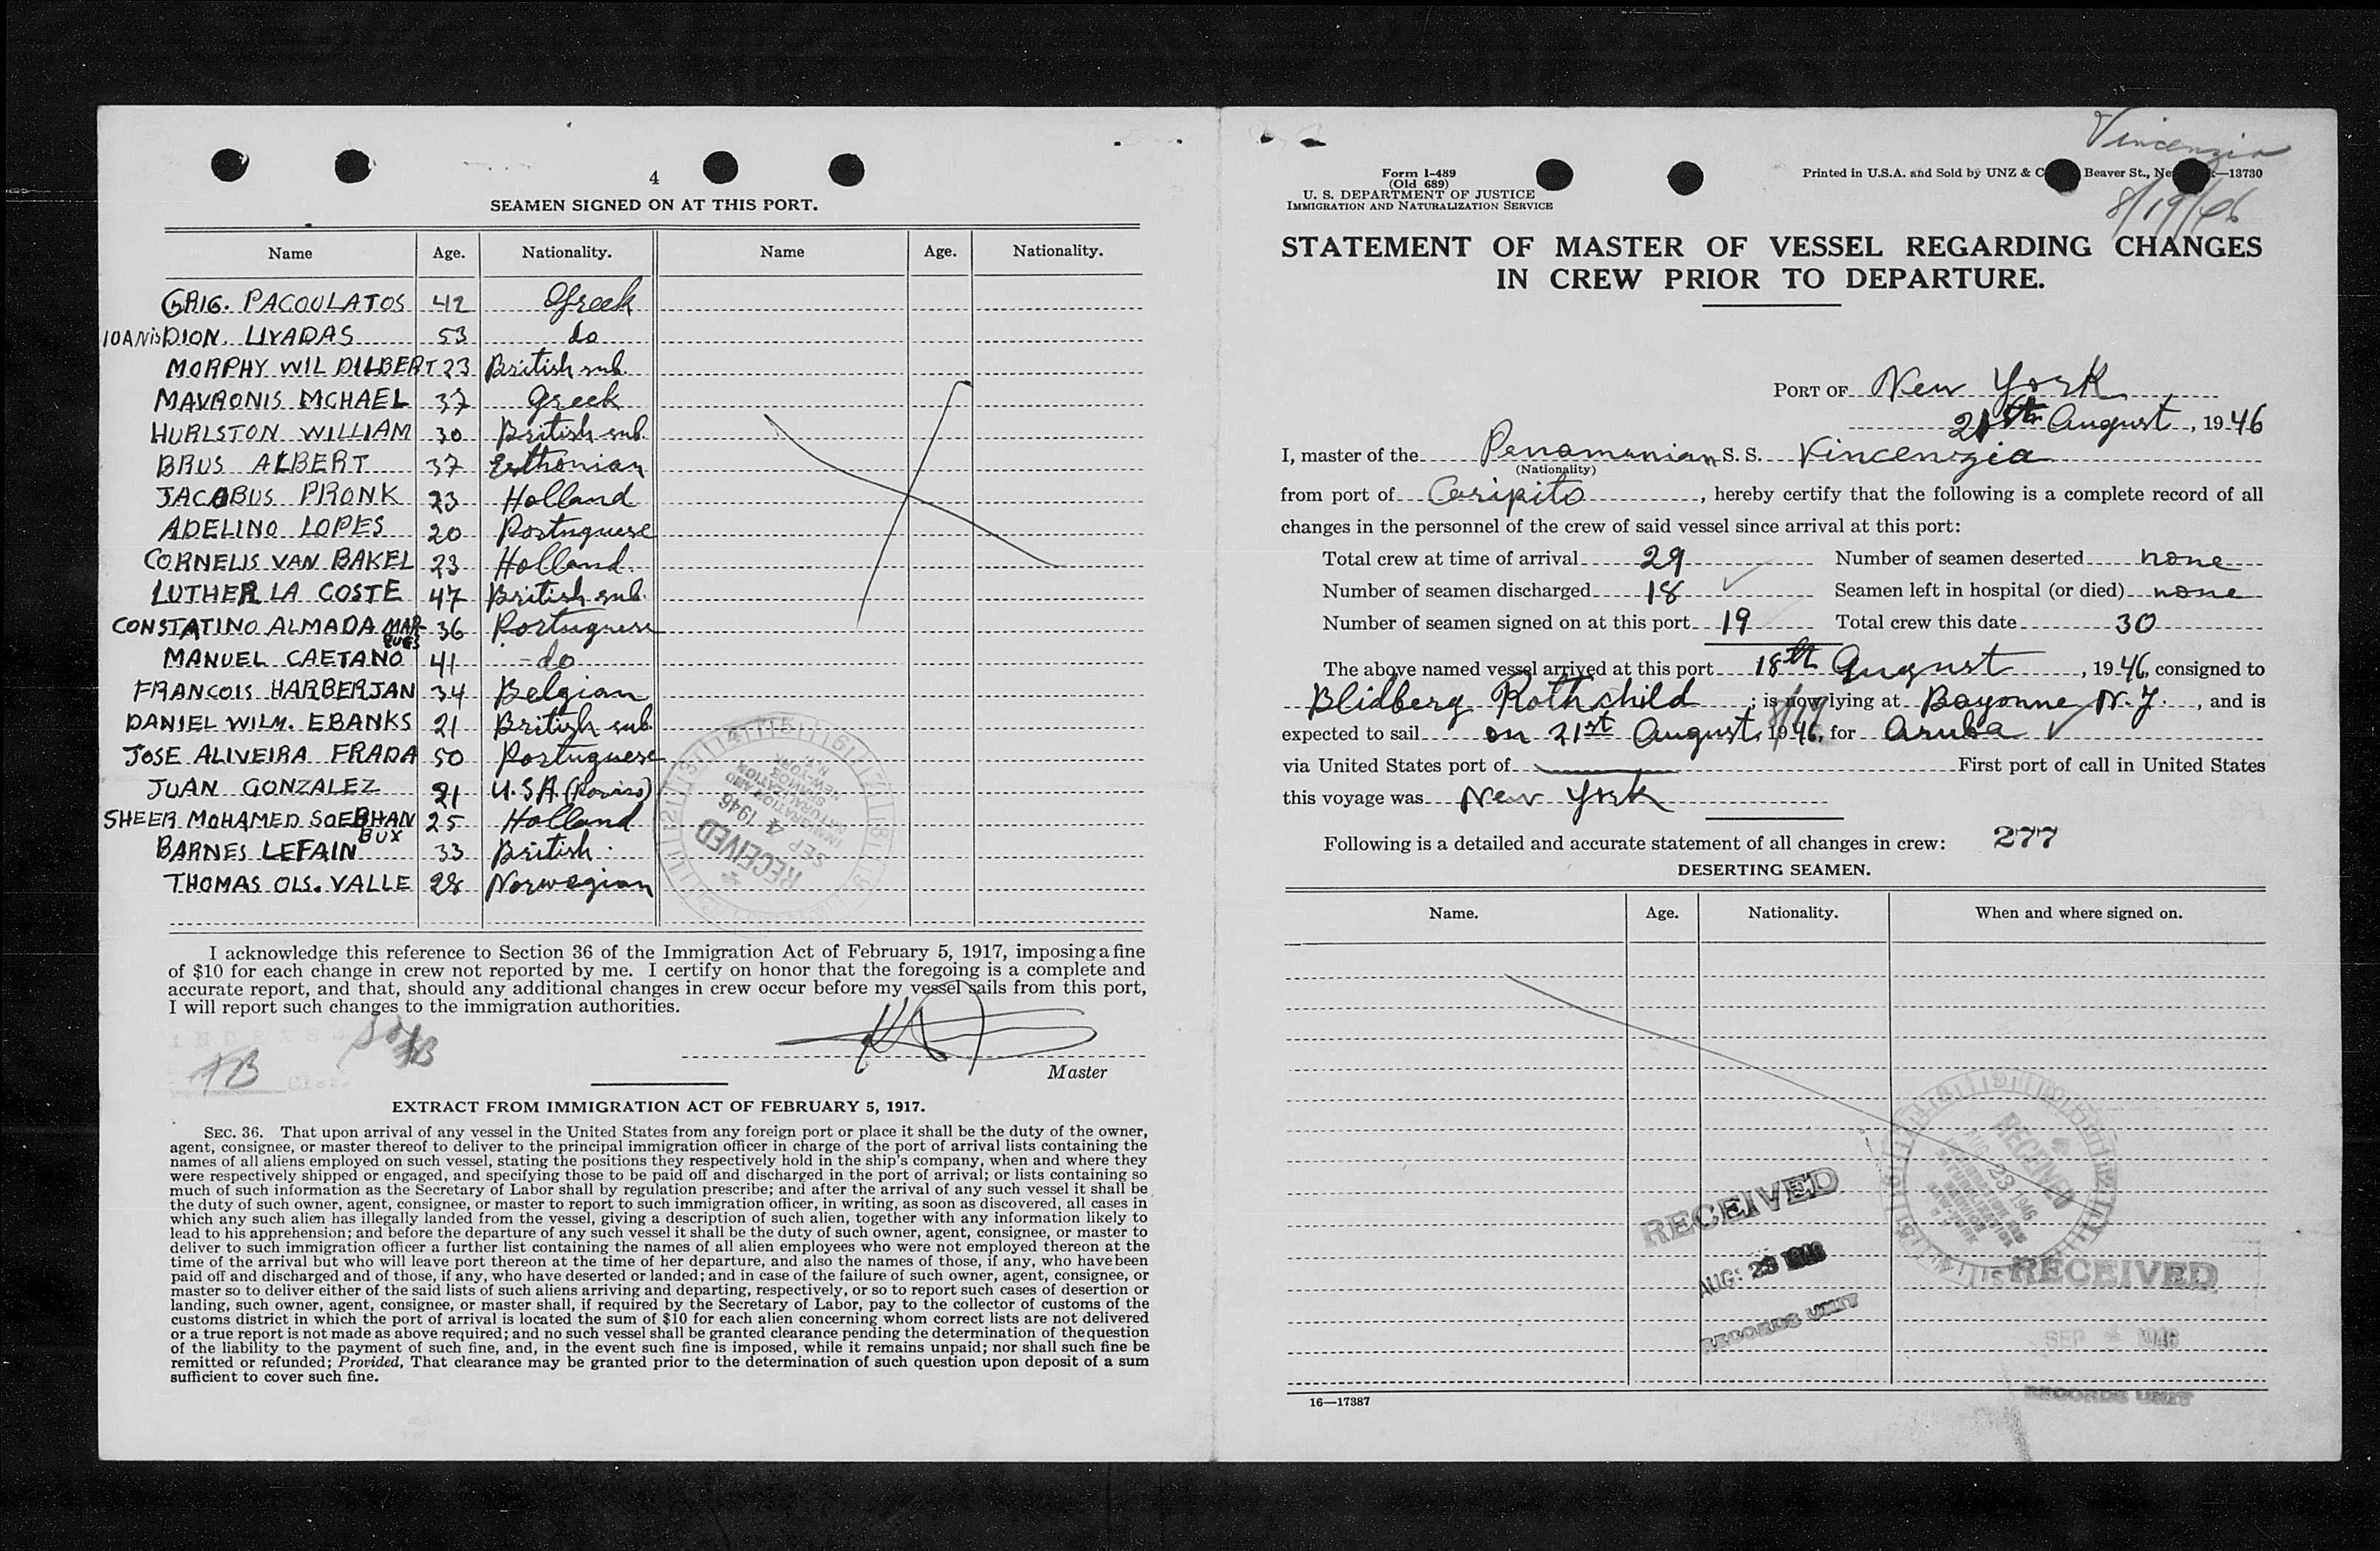 4
SEAMEN SIGNED ON AT THIS PORT.
Name Age. Nationality. Name Age. Nationality.
GRIG. PAGOULATOS 42 Greek
IOANIS DION. LIVADAS 53 do
MORPHY WIL DILBERT 23 British sub.
MAVRONIS MCHAEL 37 Greek
HURLSTON WILLIAM 30 British sub.
BRUS ALBERT 37 Esthonian
JACOBUS PRONK 23 Holland
ADELINO LOPES 20 Portuguese
CORNELIS VAN BAKEL 23 Holland.
LUTHER LA COSTE 47 British sub.
CONSTATINO ALMADA MAR 36 Portuguese
QUES
MANUEL CAETANO 41 - do
FRANCOIS HARBERJAN 34 Belgian
DANIEL WILM. EBANKS 21 British sub
JOSE ALIVEIRA FRADA 50 Portuguese
JUAN GONZALEZ 21 U.S.A.
SHEER MOHAMED SOEBHAN 25 Holland
BUX
BARNES LEFAIN 33 British.
THOMAS OLS. VALLE 28 Norwegian
RECEIVED
SEP 4 1946
IMMIGRATION AND
NATURALIZATION
SERVICE
NEW-YORK
N. Y.
I acknowledge this reference to Section 36 of the Immigration Act of February 5, 1917, imposing a fine
of $10 for each change in crew not reported by me. I certify on honor that the foregoing is a complete and
accurate report, and that, should any additional changes in crew occur before my vessel sails from this port,
I will report such changes to the immigration authorities.
INDEXED
Master
EXTRACT FROM IMMIGRATION ACT OF FEBRUARY 5, 1917.
SEC. 36. That upon arrival of any vessel in the United States from any foreign port or place it shall be the duty of the owner,
agent, consignee, or master thereof to deliver to the principal immigration officer in charge of the port of arrival lists containing the
names of all aliens employed on such vessel, stating the positions they respectively hold in the ship's company, when and where they
were respectively shipped or engaged, and specifying those to be paid off and discharged in the port of arrival; or lists containing so
much of such information as the Secretary of Labor shall by regulation prescribe; and after the arrival of any such vessel it shall be
the duty of such owner, agent, consignee, or master to report to such immigration officer, in writing, as soon as discovered, all cases in
which any such alien has illegally landed from the vessel, giving a description of such alien, together with any information likely to
lead to his apprehension; and before the departure of any such vessel it shall be the duty of such owner, agent, consignee, or master to
deliver to such immigration officer a further list containing the names of all alien employees who were not employed thereon at the
time of the arrival but who will leave port thereon at the time of her departure, and also the names of those, if any, who have been
paid off and discharged and of those, if any, who have deserted or landed; and in case of the failure of such owner, agent, consignee, or
master so to deliver either of the said lists of such aliens arriving and departing, respectively, or so to report such cases of desertion or
landing, such owner, agent, consignee, or master shall, if required by the Secretary of Labor, pay to the collector of customs of the
customs district in which the port of arrival is located the sum of $10 for each alien concerning whom correct lists are not delivered
or a true report is not made as above required; and no such vessel shall be granted clearance pending the determination of the question
of the liability to the payment of such fine, and, in the event such fine is imposed, while it remains unpaid; nor shall such fine be
remitted or refunded; Provided, That clearance may be granted prior to the determination of such question upon deposit of a sum
sufficient to cover such fine.
Vincenzia
8/19/46
Form I-489
(Old 689)
U. S. DEPARTMENT OF JUSTICE
IMMIGRATION AND NATURALIZATION SERVICE
Printed in U.S.A. and Sold by UNZ & C Beaver St., Ne —13730
STATEMENT OF MASTER OF VESSEL REGARDING CHANGES
IN CREW PRIOR TO DEPARTURE.
PORT OF New York
21st August, 1946
I, master of the Panamanian S. S. Vincenzia
(Nationality)
from port of Caripito, hereby certify that the following is a complete record of all
changes in the personnel of the crew of said vessel since arrival at this port:
Total crew at time of arrival 29 Number of seamen deserted none
Number of seamen discharged 18 Seamen left in hospital (or died) none
Number of seamen signed on at this port 19 Total crew this date 30
The above named vessel arrived at this port 18th August, 1946, consigned to
Blidberg Rothchild; is now lying at Bayonne N.J., and is
expected to sail on 21st August, 1946, for Aruba
via United States port of First port of call in United States
this voyage was New York
Following is a detailed and accurate statement of all changes in crew: 277
DESERTING SEAMEN.
Name. Age. Nationality. When and where signed on.
RECEIVED
AUG 23 1946
IMMIGRATION AND
NATURALIZATION
SERVICE
NEW-YORK
N. Y.
RECEIVED
AUG 23 1946
RECORDS UNIT
RECEIVED
SEP 4 1946
RECORDS UNIT
16—17387